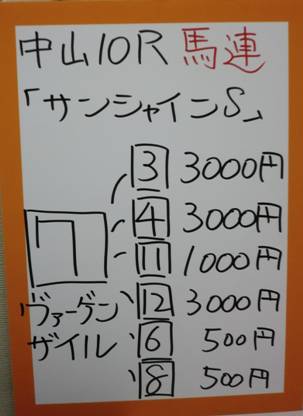 中山10R 馬連
「サンシャインS」
3 3000円
4 3000円
7 11 1000円
ヴァーゲン 12 3000円
ザイル 6 500円
8 500円